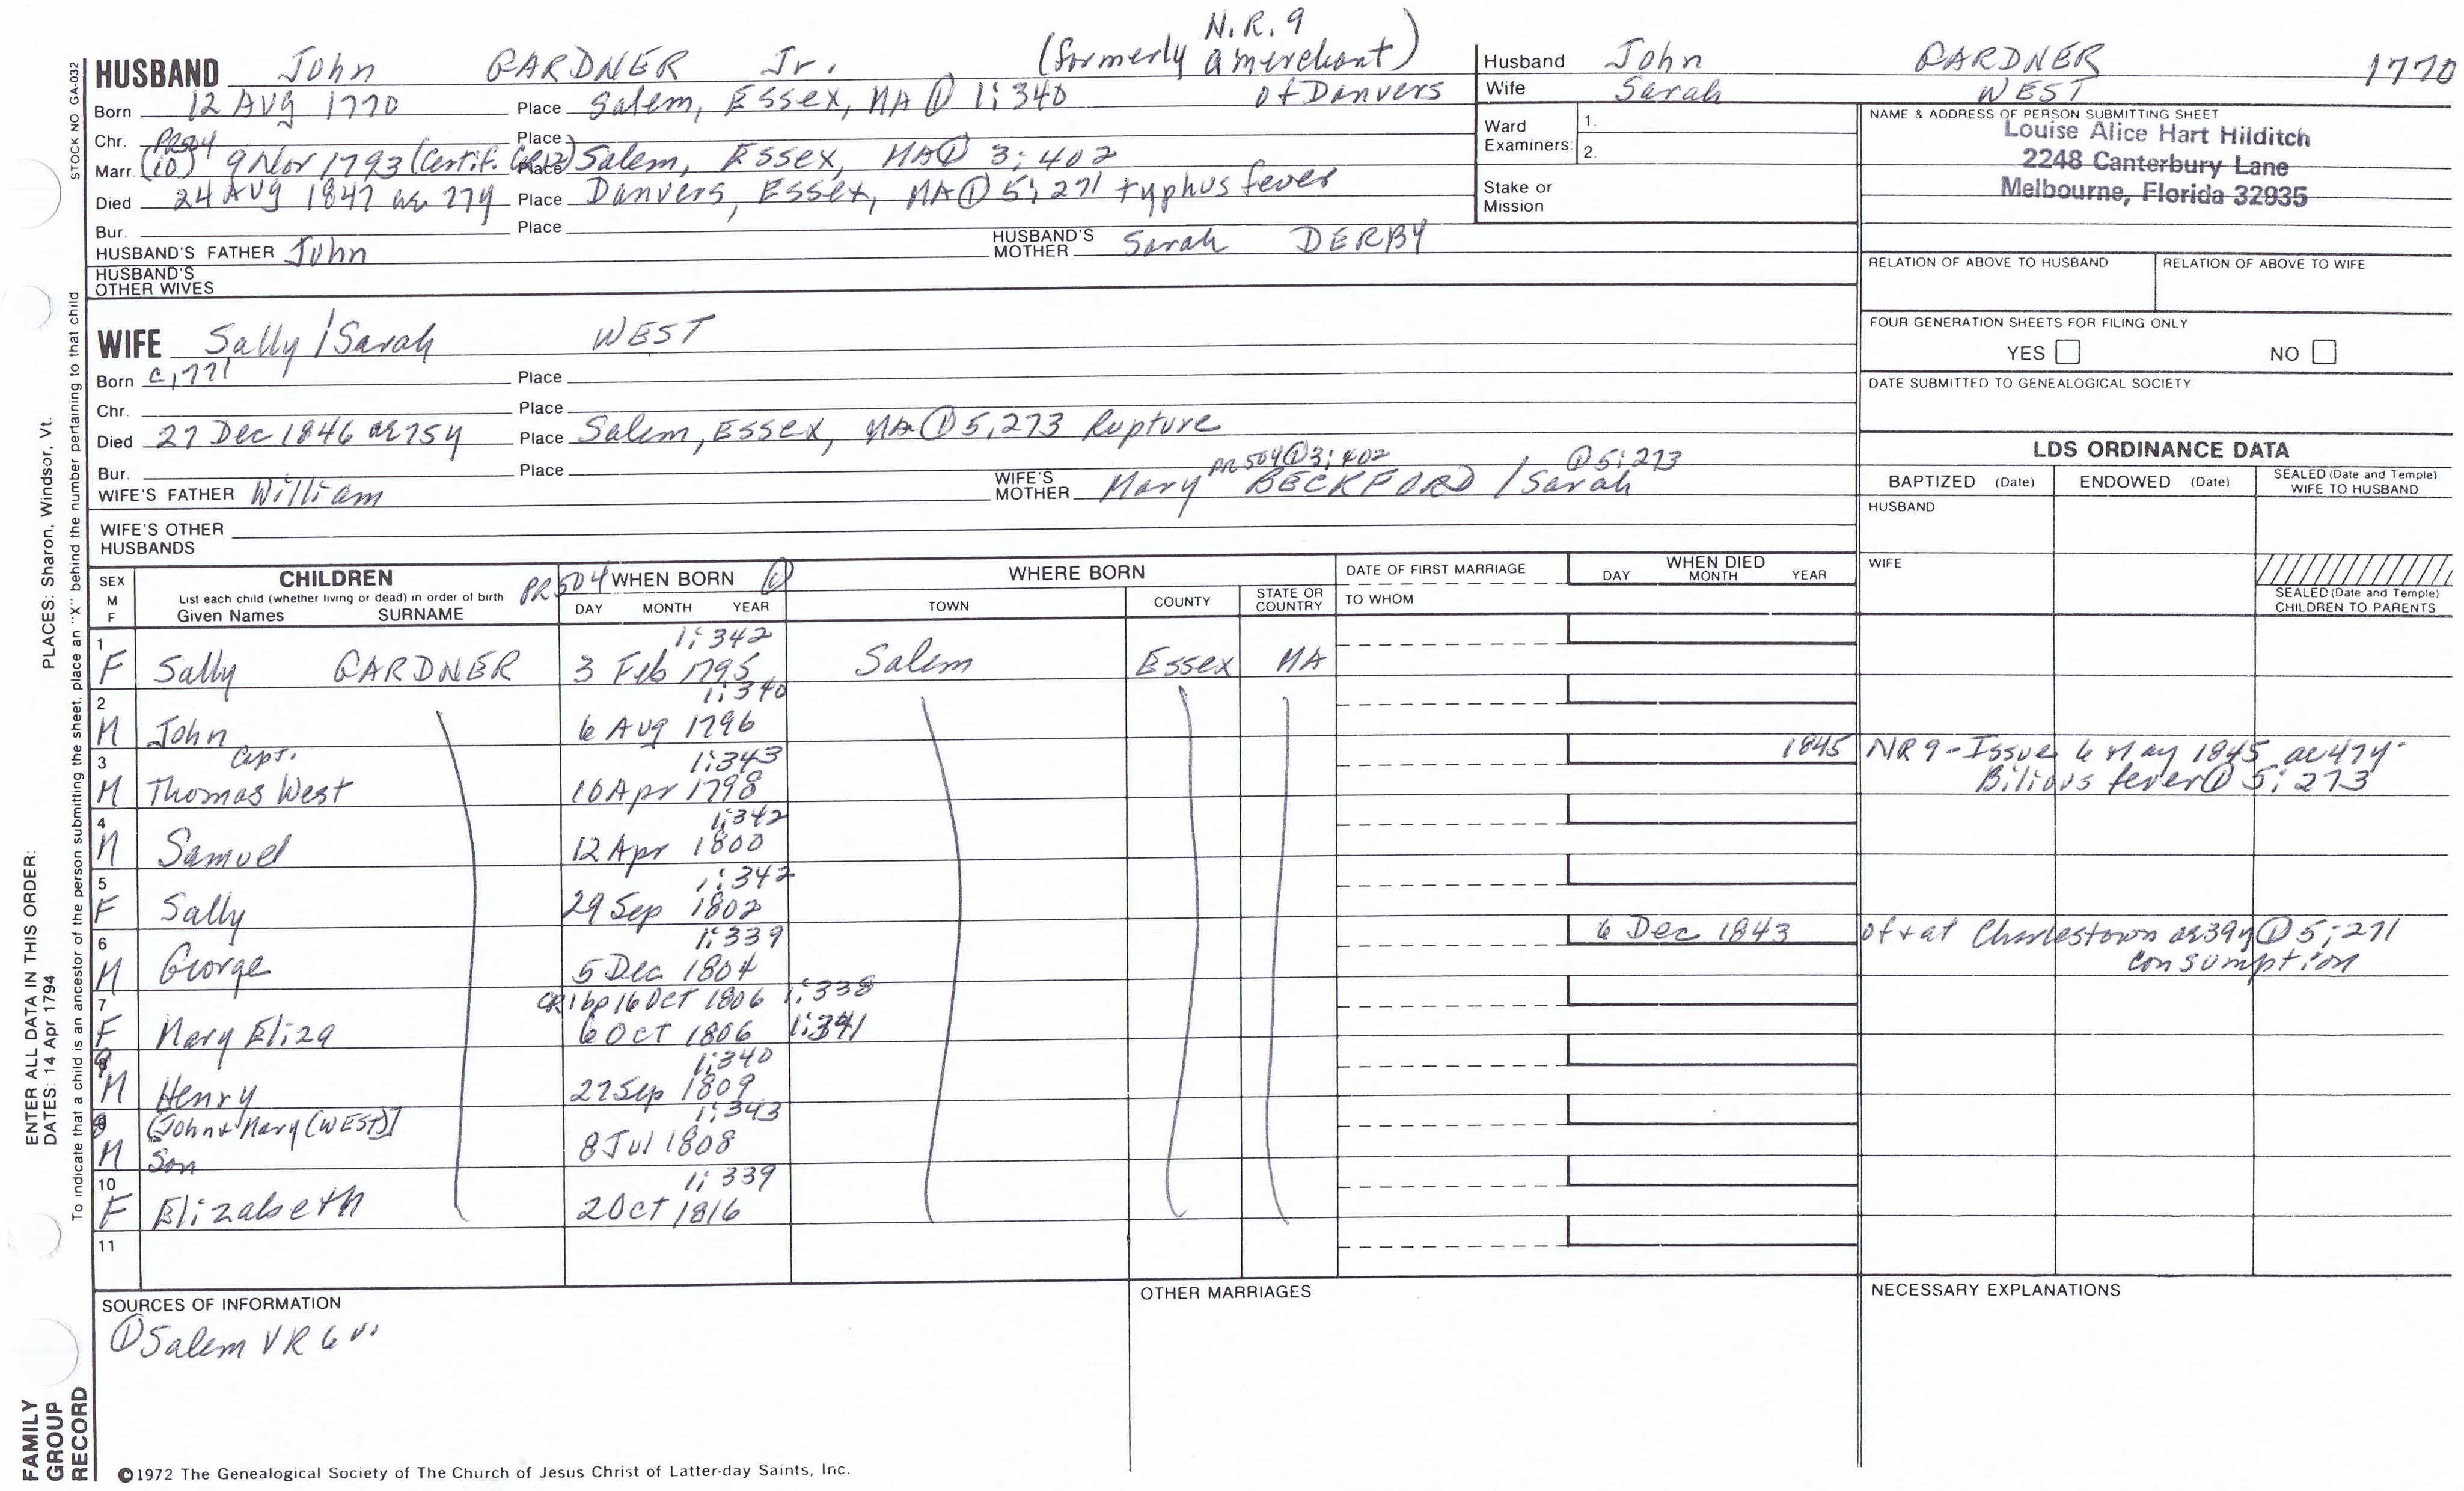 N.R.9
HUSBAND John GARDNER Jr. (formerly a merchant)
Born 12 AUg 1770 Place Salem, Essex, MA ① 1:340 of Danvers
Chr. PR504 Place
Marr. (10) 9 Nov 1793 (Certif. CR12) Place Salem, Essex, MA① 3:402
Died 24 AUg 1847 ae 77y Place Danvers, Essex, MA① 5:271 typhus fever
Bur. Place
HUSBAND'S FATHER John HUSBAND'S MOTHER Sarah DERBY
HUSBAND'S OTHER WIVES
Husband John GARDNER 1770
Wife Sarah WEST
Ward Examiners: 1.
2.
Stake or Mission
NAME & ADDRESS OF PERSON SUBMITTING SHEET
Louise Alice Hart Hilditch
2248 Canterbury Lane
Melbourne, Florida 32935
RELATION OF ABOVE TO HUSBAND RELATION OF ABOVE TO WIFE
FOUR GENERATION SHEETS FOR FILING ONLY
YES NO
DATE SUBMITTED TO GENEALOGICAL SOCIETY
WIFE Sally / Sarah WEST
Born c1771 Place
Chr. Place
Died 27 Dec 1846 ae 75y Place Salem, Essex, MA ① 5:273 Rupture
Bur. Place PR504①3:402 ①5:273
WIFE'S FATHER William WIFE'S MOTHER Mary BECKFORD / Sarah
WIFE'S OTHER HUSBANDS
LDS ORDINANCE DATA
BAPTIZED (Date) ENDOWED (Date) SEALED (Date and Temple) WIFE TO HUSBAND
HUSBAND
WIFE
SEALED (Date and Temple) CHILDREN TO PARENTS
SEX M F
CHILDREN
List each child (whether living or dead) in order of birth
Given Names SURNAME
PR504 WHEN BORN ①
DAY MONTH YEAR
WHERE BORN
TOWN COUNTY STATE OR COUNTRY
DATE OF FIRST MARRIAGE
TO WHOM
WHEN DIED
DAY MONTH YEAR
1 1:342
F Sally GARDNER 3 Feb 1795 Salem Essex MA
2 1:340
M John 6 AUg 1796
3 Capt. 1:343 1845 NR9-Issue 6 May 1845 ae47y
M Thomas West 10 Apr 1798 Bilious fever① 5:273
4 1:342
M Samuel 12 Apr 1800
5 1:342
F Sally 29 Sep 1802
6 1:339 6 Dec 1843 of + at Charlestown ae39y① 5:271
M George 5 Dec 1804 consumption
7 CR1 bp 16 OCT 1806 1:338
F Mary Eliza 6 Oct 1806 1:341
1:340
M Henry 27 Sep 1809
[John + Mary (WEST)] 1:343
M Son 8 Jul 1808
10 1:339
F Elizabeth 2 Oct 1816
11
SOURCES OF INFORMATION
① Salem VR 6 v.
OTHER MARRIAGES
NECESSARY EXPLANATIONS
©1972 The Genealogical Society of The Church of Jesus Christ of Latter-day Saints, Inc.
STOCK NO GA-032
To indicate that a child is an ancestor of the person submitting the sheet, place an "X" behind the number pertaining to that child
PLACES: Sharon, Windsor, Vt.
ENTER ALL DATA IN THIS ORDER:
DATES: 14 Apr 1794
FAMILY
GROUP
RECORD